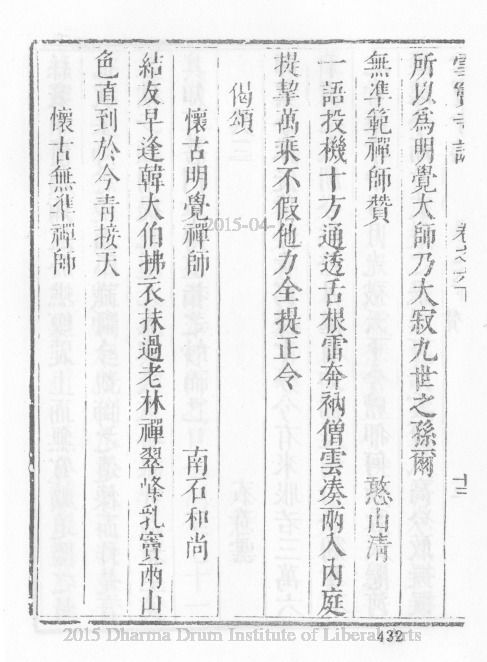 雪竇寺誌 卷之六下 十三
所以爲明覺大師乃大寂九世之孫爾
無準範禪師贊 憨山清
一語投機十方通透舌根雷奔衲僧雲凑兩入內庭
提挈萬乘不假他力全提正令
偈頌
懷古明覺禪師 南石和尚
結友早逢韓大伯拂衣抹過老林禪翠峰乳竇兩山
色直到於今青接天
懷古無準禪師
2015-04-17
432
2015 Dharma Drum Institute of Liberal Arts